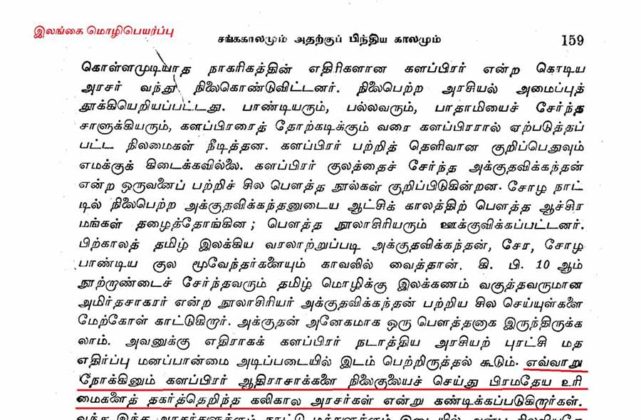 இலங்கை மொழிபெயர்ப்பு
சங்ககாலமும் அதற்குப் பிந்திய காலமும் 159
கொள்ளமுடியாத நாகரிகத்தின் எதிரிகளான களப்பிரர் என்ற கொடிய
அரசர் வந்து நிலைகொண்டுவிட்டனர். நிலைபெற்ற அரசியல் அமைப்புத்
தூக்கியெறியப்பட்டது. பாண்டியரும், பல்லவரும், பாதாமியைச் சேர்ந்த
சாளுக்கியரும், களப்பிரரைத் தோற்கடிக்கும் வரை களப்பிரரால் ஏற்படுத்தப்
பட்ட நிலமைகள் நீடித்தன. களப்பிரர் பற்றித் தெளிவான குறிப்பெதுவும்
எமக்குக் கிடைக்கவில்லை. களப்பிரர் குலத்தைச் சேர்ந்த அக்குதவிக்கந்தன்
என்ற ஒருவனைப் பற்றிச் சில பௌத்த நூல்கள் குறிப்பிடுகின்றன. சோழ நாட்
டில் நிலைபெற்ற அக்குதவிக்கந்தனுடைய ஆட்சிக் காலத்திற் பௌத்த ஆச்சிர
மங்கள் தழைத்தோங்கின ; பௌத்த நூலாசிரியரும் ஊக்குவிக்கப்பட்டனர்.
பிற்காலத் தமிழ் இலக்கிய வரலாற்றுப்படி அக்குதவிக்கந்தன், சேர, சோழ
பாண்டிய குல மூவேந்தர்களையும் காவலில் வைத்தான். கி. பி. 10 ஆம்
நூற்றாண்டைச் சேர்ந்தவரும் தமிழ் மொழிக்கு இலக்கணம் வகுத்தவருமான
அமிர்தசாகரர் என்ற நூலாசிரியர் அக்குதவிக்கந்தன் பற்றிய சில செய்யுள்களை
மேற்கோள் காட்டுகிறார். அக்குதன் அனேகமாக ஒரு பௌத்தனாக இருந்திருக்க
லாம். அவனுக்கு எதிராகக் களப்பிரர் நடாத்திய அரசியற் புரட்சி மத
எதிர்ப்பு மனப்பான்மை அடிப்படையில் இடம் பெற்றிருத்தல் கூடும். எவ்வாறு
நோக்கினும் களப்பிரர் ஆதிராசாக்களை நிலைகுலையச் செய்து பிரமதேய உரி
மைகளைத் தகர்த்தெறிந்த கலிகால அரசர்கள் என்று கண்டிக்கப்படுகிறார்கள்.